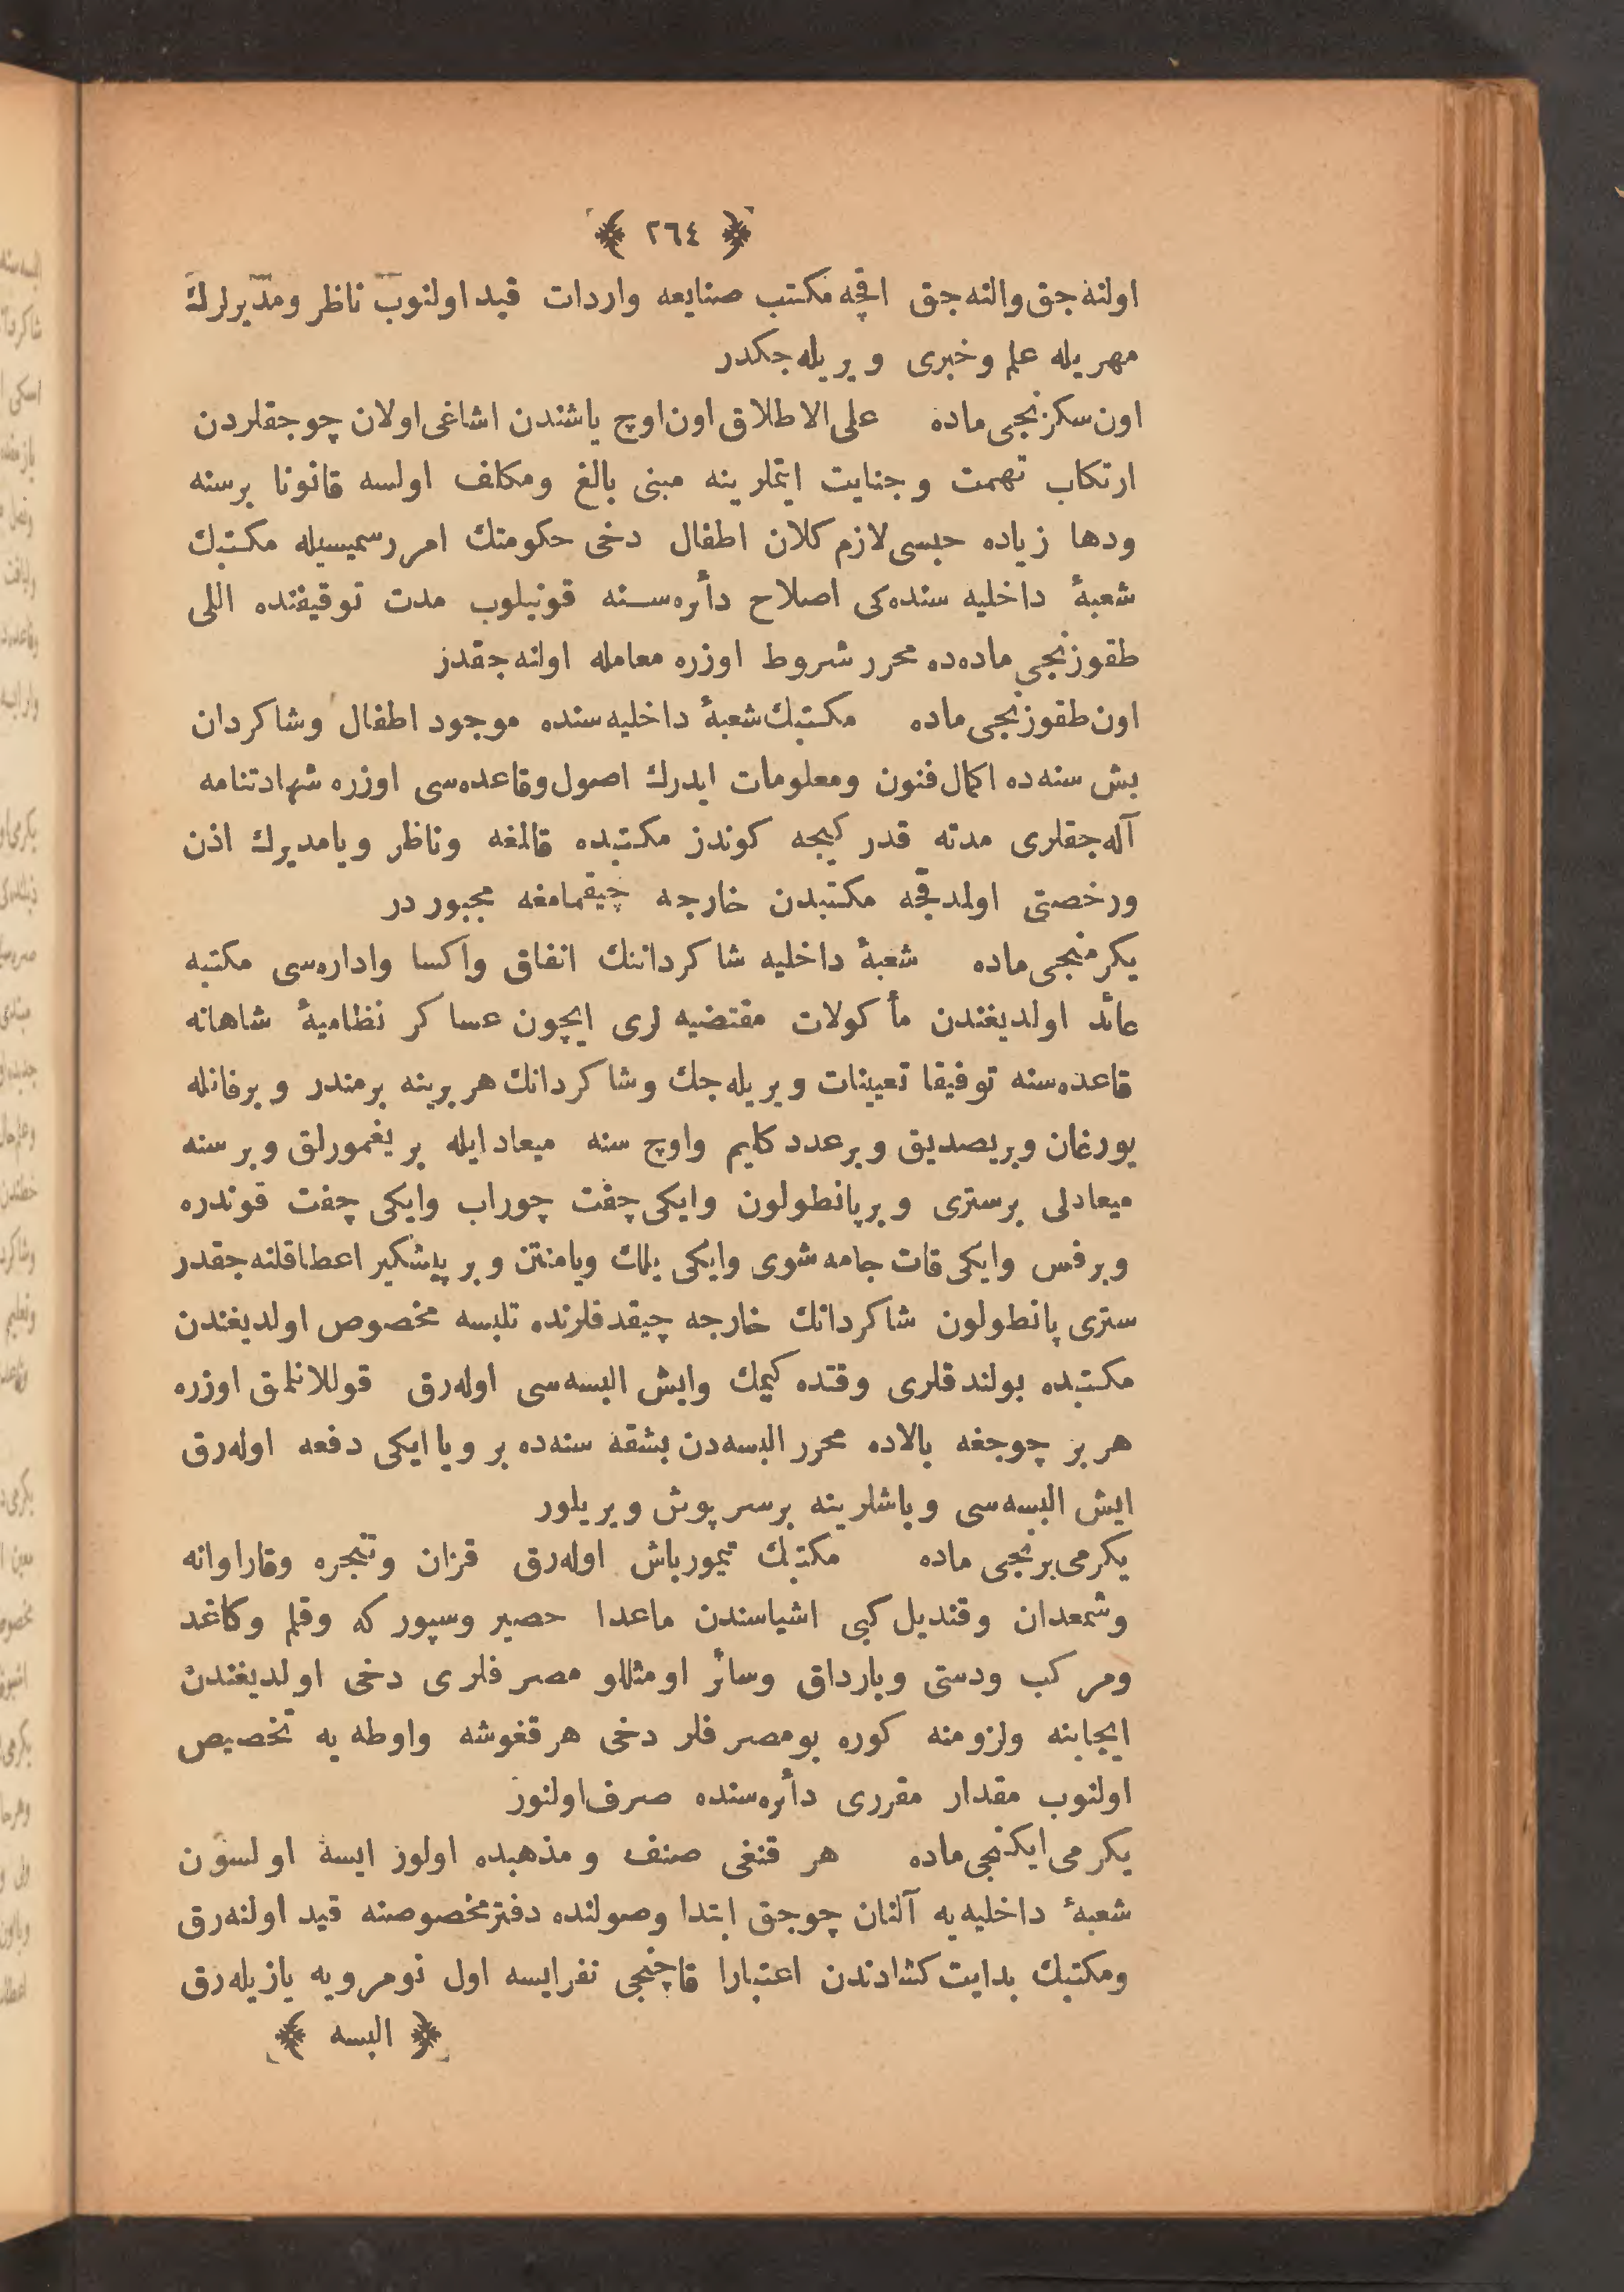 ﴿ ٢٦٤ ﴾
اولنه‌جق والنه‌جق اقچه مكتب صنايعه واردات قيد اولنوب ناظر ومديرلرك
مهريله علم وخبرى ويريله‌جكدر
اون سكزنجى ماده على الاطلاق اون اوچ ياشندن اشاغى اولان چوجقلردن
ارتكاب تهمت وجنايت ايتملرينه مبنى بالغ ومكلف اولسه قانونا برسنه
ودها زياده حبسى لازم كلان اطفال دخى حكومتك امر رسميسيله مكتبك
شعبهٔ داخليه سنده‌كى اصلاح دأره‌سنه قونيلوب مدت توقيفنده اللى
طقوزنجى ماده‌ده محرر شروط اوزره معامله اولنه‌جقدر
اون طقوزنجى ماده مكتبك شعبهٔ داخليه سنده موجود اطفال وشاكردان
بش سنه‌ده اكمال فنون ومعلومات ايدرك اصول وقاعده‌سى اوزره شهادتنامه
آله‌جقلرى مدته قدر كيجه كوندز مكتبده قالمغه وناظر ويامديرك اذن
ورخصتى اولمدقجه مكتبدن خارجه چيقمامغه مجبوردر
يكرمنجى ماده شعبهٔ داخليه شاكرداننك انفاق واكسا واداره‌سى مكتبه
عائد اولديغندن مأكولات مقتضيه لرى ايچون عساكر نظاميهٔ شاهانه
قاعده‌سنه توفيقا تعيينات ويريله‌جك وشاكردانك هربرينه برمندر وبرفانله
يورغان وبريصديق وبرعدد كليم واوچ سنه ميعاد ايله بر يغمورلق وبرسنه
ميعادلى برسترى وبرپانطولون وايكى چفت چوراب وايكى چفت قوندره
وبرفس وايكى قات جامه شوى وايكى يلك ويامنتن وبر پيشكير اعطاقلنه‌جقدر
سترى پانطولون شاكردانك خارجه چيقدقلرنده تلبسه مخصوص اولديغندن
مكتبده بولندقلرى وقتده كيمك وايش البسه‌سى اوله‌رق قوللانلمق اوزره
هربر چوجغه بالاده محرر البسه‌دن بشقه سنه‌ده بر ويا ايكى دفعه اوله‌رق
ايش البسه‌سى وباشلرينه برسرپوش ويريلور
يكرمى برنجى ماده مكتبك تيمورباش اوله‌رق قزان وتنجره وقاراوانه
وشمعدان وقنديل كبى اشياسندن ماعدا حصير وسپوركه وقلم وكاغد
ومركب ودستى وبارداق وسائر اومثللو مصرفلرى دخى اولديغندن
ايجابنه ولزومنه كوره بومصرفلر دخى هرقغوشه واوطه‌يه تخصيص
اولنوب مقدار مقررى دأره‌سنده صرف اولنور
يكرمى ايكنجى ماده هر قنغى صنف ومذهبده اولور ايسه اولسون
شعبهٔ داخليه‌يه آلنان چوجق ابتدا وصولنده دفتر مخصوصنه قيد اولنه‌رق
ومكتبك بدايت كشادندن اعتبارا قاچنجى نفرايسه اول نومرويه يازيله‌رق
﴿ البسه ﴾